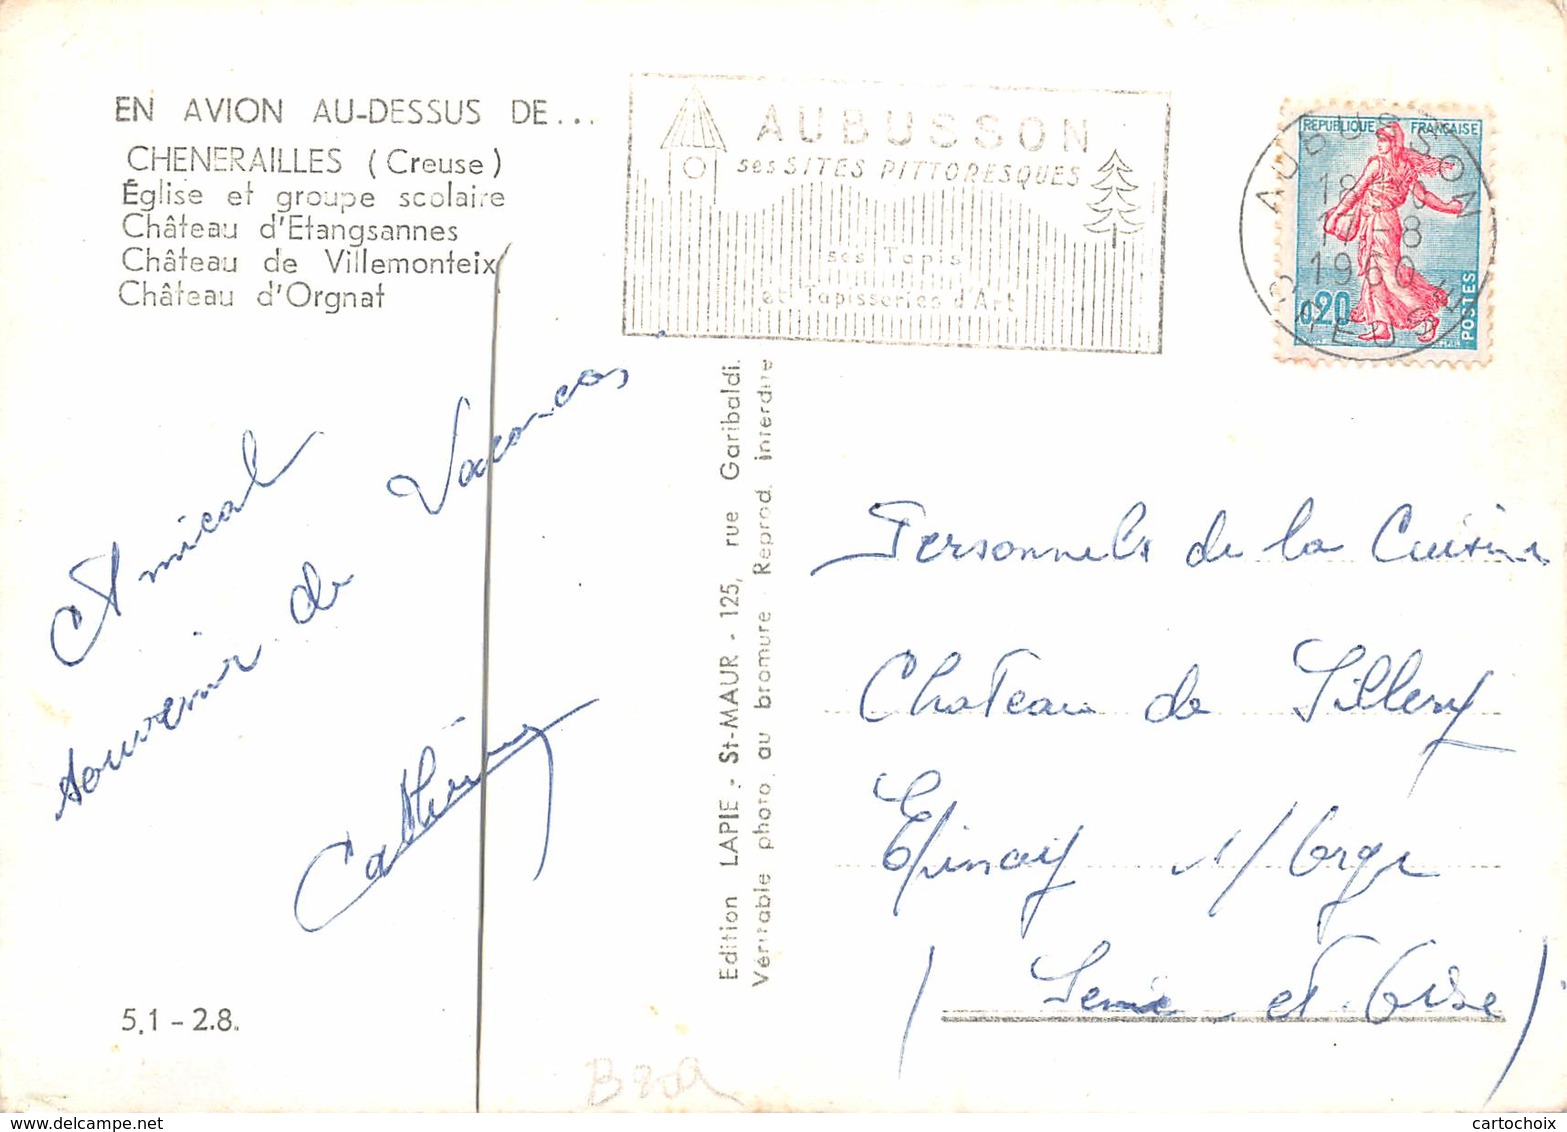 EN AVION AU-DESSUS DE...
CHENERAILLES (Creuse)
Église et groupe scolaire
Château d'Etangsannes
Château de Villemonteix
Château d'Orgnat
AUBUSSON
ses SITES PITTORESQUES
ses Tapis
et Tapisseries d'Art
REPUBLIQUE FRANÇAISE
0,20
POSTES
AUBUSSON
18
17-8
1960
CREUSE
Amical
souvenir de Vacances
Catherine
5.1 - 2.8.
Edition LAPIE - St-MAUR - 125, rue Garibaldi.
Véritable photo au bromure - Reprod. interdite
Personnels de la Cuisine
Chateau de Sillery
Epinay s/ Orge
(Seine et Oise)
cartochoix